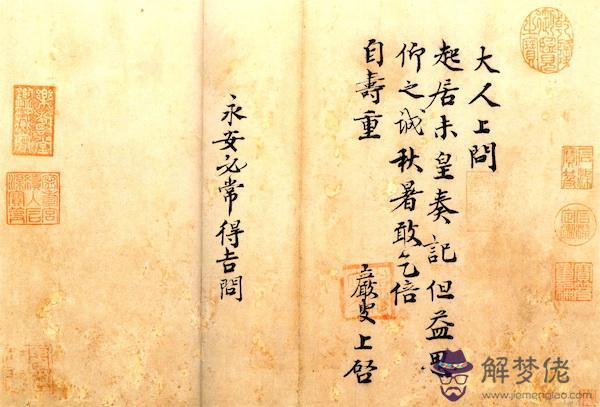 大人上問
起居未皇奏記但益思
仰之誠秋暑敢乞倍
自壽重
巖叟上啓
永安必常得吉問
解梦佬
www.jiemenglao.com